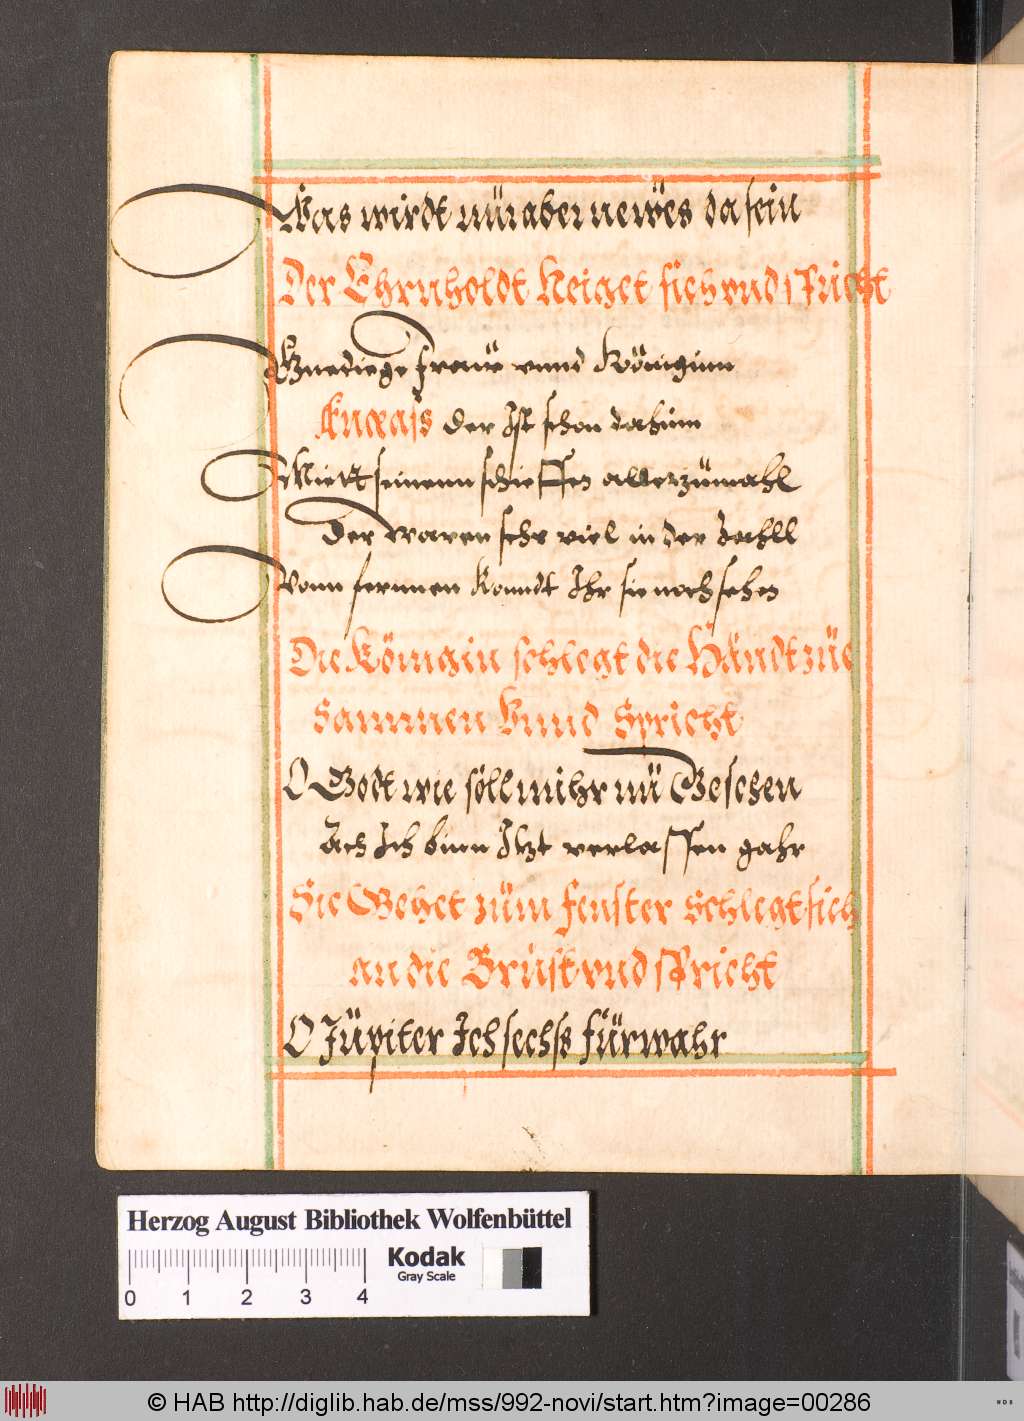 Was wirdt nür aber newës da sein
Der Ehrnholdt Neiget sich vnd spricht
Gnediege frauw vnnd Königinn
Aneas der Ist schon dahinn
Mitt seinenn schieffen allerzümahl
Der waren sehr viel in der Zahll
Vonn fernnen Konndt Ihr sie noch sehen
Die Königin schlegt die Händt züe
Sammen Vnnd Spricht
O Godt wie söll mihr nü Geschen
Ach Ich binn Itzt verlassen gahr
Sie Gehet züm fenster schlegt sich
an die Brüst vnd spricht
O Jüpiter Ich sechß fürwahr
Herzog August Bibliothek Wolfenbüttel
Kodak
Gray Scale
0 1 2 3 4
© HAB http://diglib.hab.de/mss/992-novi/start.htm?image=00286